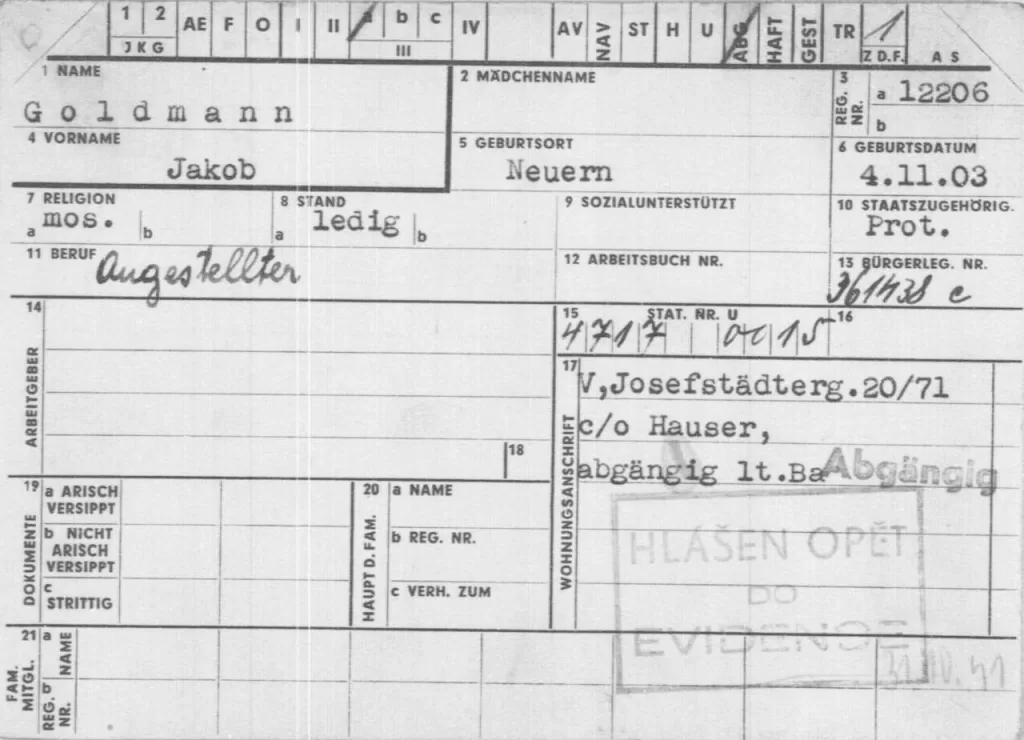 1 2 AE F O I II a b c IV AV NAV ST H U ABG HAFT GEST TR 1
JKG III Z D.F. A S
1 NAME
Goldmann
2 MÄDCHENNAME
3 REG. NR. a 12206
b
4 VORNAME
Jakob
5 GEBURTSORT
Neuern
6 GEBURTSDATUM
4.11.03
7 RELIGION
a mos. b
8 STAND
a ledig b
9 SOZIALUNTERSTÜTZT
10 STAATSZUGEHÖRIG.
Prot.
11 BERUF Angestellter
12 ARBEITSBUCH NR.
13 BÜRGERLEG. NR.
361438 c
14
ARBEITGEBER
15 STAT. NR. U
4717 0015
16
17 WOHNUNGSANSCHRIFT
V,Josefstädterg.20/71
c/o Hauser,
abgängig lt.Ba
Abgängig
18
19 DOKUMENTE
a ARISCH
VERSIPPT
b NICHT
ARISCH
VERSIPPT
c
STRITTIG
20 HAUPT D. FAM.
a NAME
b REG. NR.
c VERH. ZUM
HLÁŠEN OPĚT
DO
EVIDENCE
31.10.41
21 FAM. MITGL.
a NAME
b REG. NR.